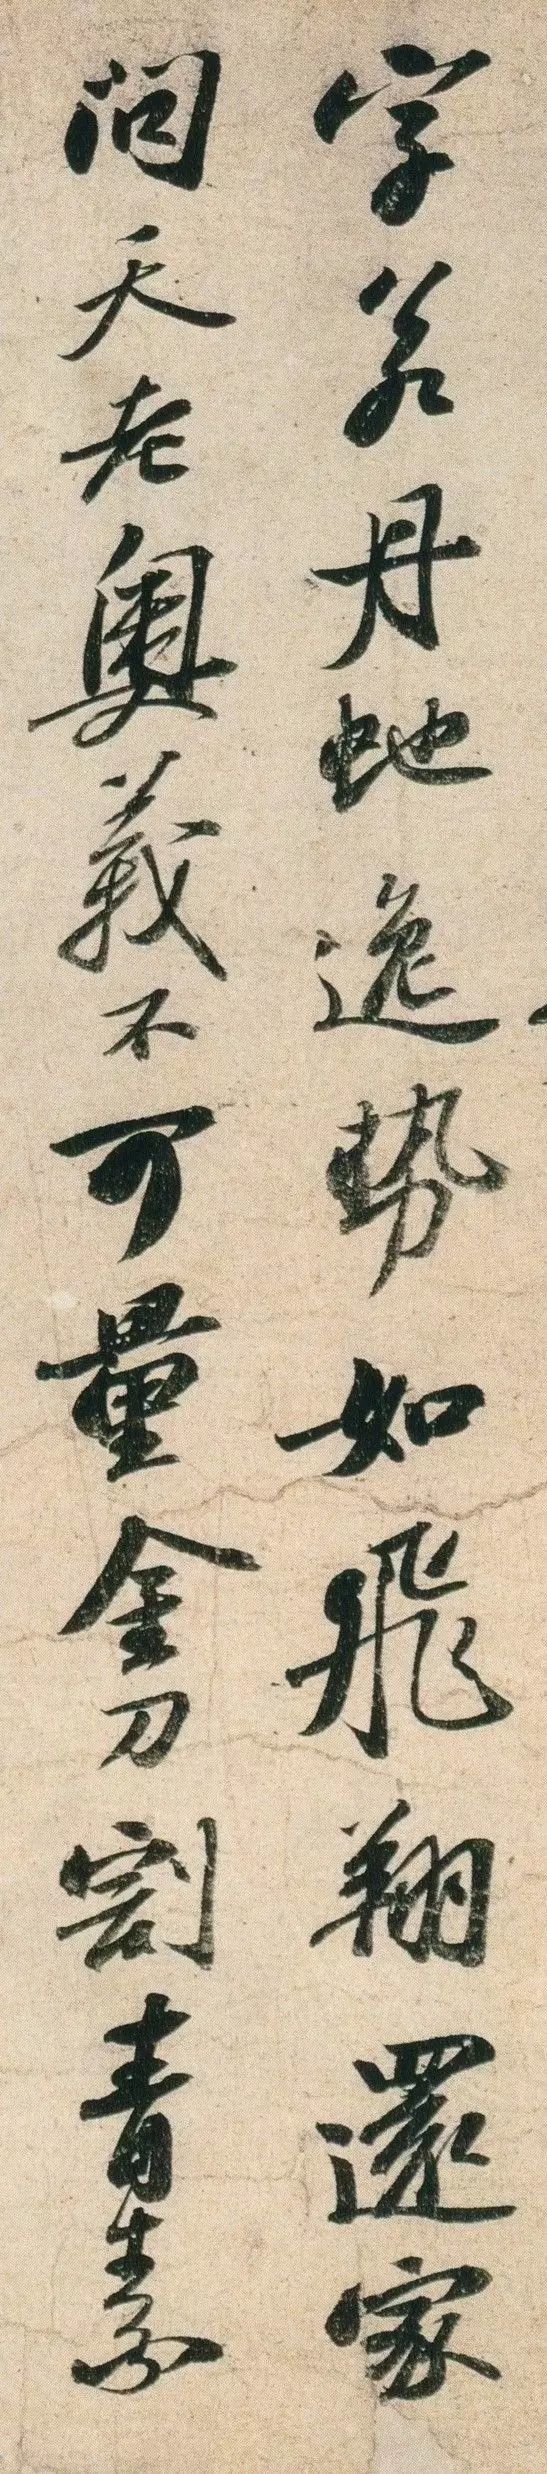 字若丹虵逸勢如飛翔還家
問天老奧義不可量金刀割青素